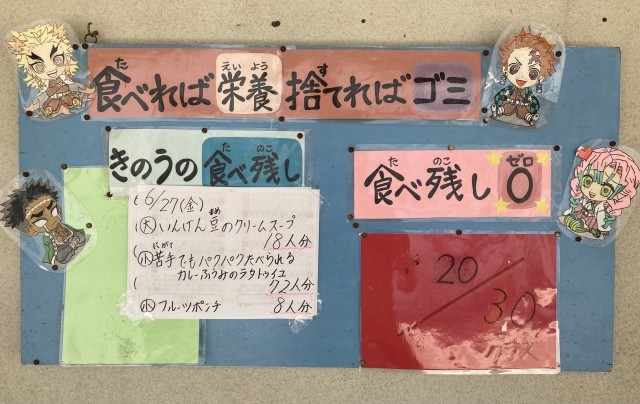 食べれば栄養 捨てればゴミ
きのうの食べ残し
6/27(金)
大 いんげん豆のクリームスープ
18人分
小 苦手でもパクパクたべられる
カレーふうみのラタトゥイユ
72人分
小 フルーツポンチ 8人分
食べ残し 0
20/30
クラス